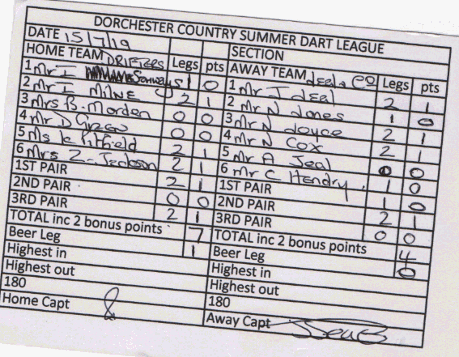 DORCHESTER COUNTRY SUMMER DART LEAGUE
DATE 15/7/19
SECTION
HOME TEAM DRIFTERS Legs pts
AWAY TEAM Legs pts
1 Mr I 1 0
1 Mr J Jeal 2 1
2 Mr I MILNE 2 1
2 Mr N Jones 1 0
3 Mrs B. Morden 0 0
3 Mr N Joyce 2 1
4 Mr D Green 0 0
4 Mr N Cox 2 1
5 Ms K Pitfield 2 1
5 Mr A Jeal 0 0
6 Mrs Z Jackson 2 1
6 Mr C Hendry 1 0
1ST PAIR 2 1
1ST PAIR 1 0
2ND PAIR 0 0
2ND PAIR 2 1
3RD PAIR 2 1
3RD PAIR 0 0
TOTAL inc 2 bonus points 7
TOTAL inc 2 bonus points 4
Beer Leg 1
Beer Leg 0
Highest in
Highest in
Highest out
Highest out
180
180
Home Capt
Away Capt